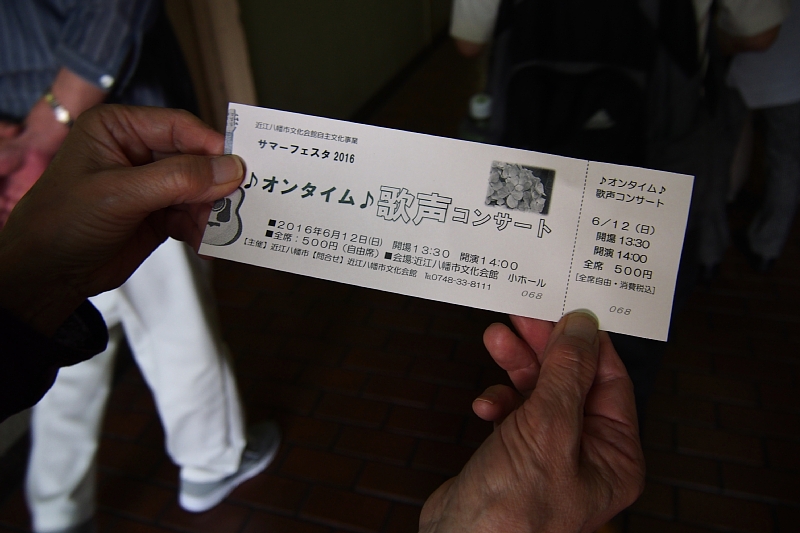 近江八幡市文化会館自主文化事業
サマーフェスタ 2016
♪オンタイム♪歌声コンサート
■2016年6月12日(日) 開場13:30 開演14:00
■全席:500円(自由席) ■会場:近江八幡市文化会館 小ホール
【主催】近江八幡市【問合せ】近江八幡市文化会館 ℡0748-33-8111
068
♪オンタイム♪
歌声コンサート
6/12(日)
開場 13:30
開演 14:00
全席 500円
[全席自由・消費税込]
068